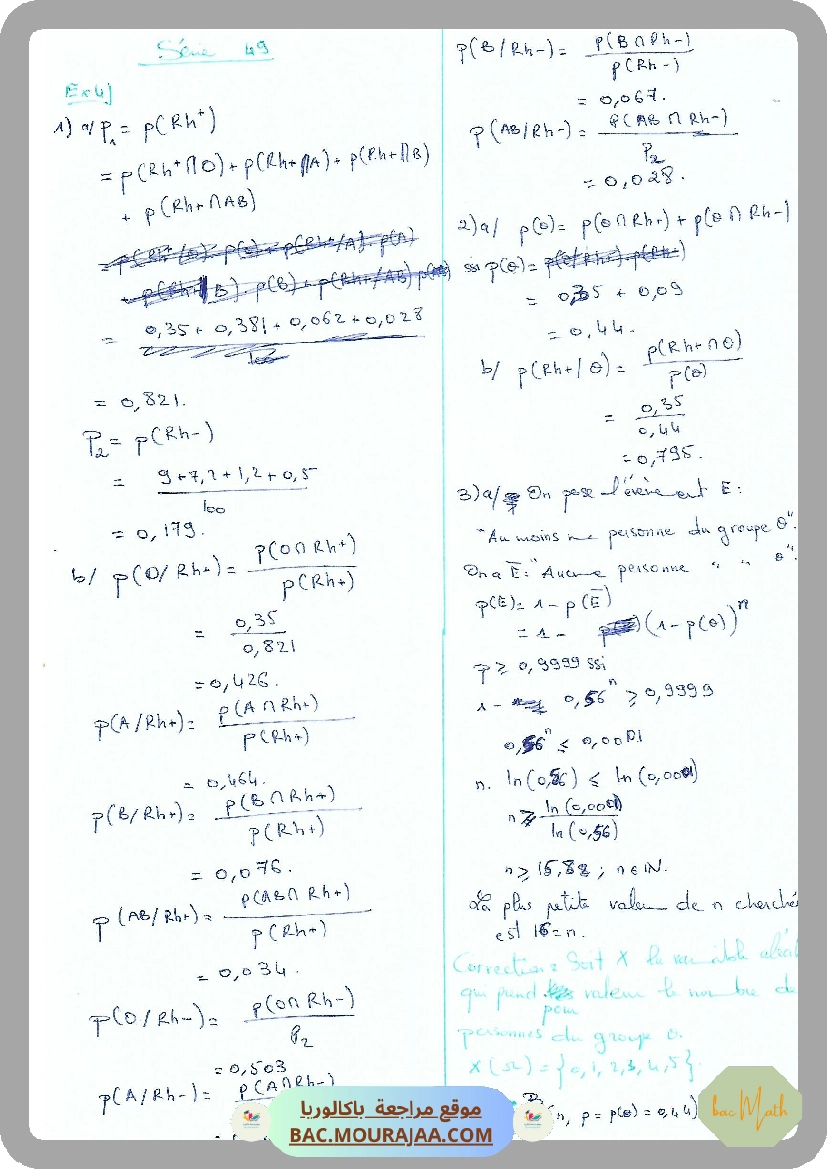 Série 49
Ex 4]
1) a/ P₁ = p(Rh⁺)
= p(Rh⁺∩O) + p(Rh+∩A) + p(Rh+∩B)
+ p(Rh+∩AB)
= 0,35 + 0,381 + 0,062 + 0,028
= 0,821.
P₂ = p(Rh-)
= (9 + 7,2 + 1,2 + 0,5) / 100
= 0,179.
b/ p(O/Rh+) = p(O∩Rh+) / p(Rh+)
= 0,35 / 0,821
= 0,426.
p(A/Rh+) = p(A∩Rh+) / p(Rh+)
= 0,464.
p(B/Rh+) = p(B∩Rh+) / p(Rh+)
= 0,076.
p(AB/Rh+) = p(AB∩Rh+) / p(Rh+)
= 0,034.
p(O/Rh-) = p(O∩Rh-) / P₂
= 0,503
p(A/Rh-) = p(A∩Rh-)
p(B/Rh-) = p(B∩Rh-) / p(Rh-)
= 0,067.
p(AB/Rh-) = p(AB∩Rh-) / P₂
= 0,028.
2) a/ p(O) = p(O∩Rh+) + p(O∩Rh-)
p(O) =
= 0,35 + 0,09
= 0,44.
b/ p(Rh+/O) = p(Rh+∩O) / p(O)
= 0,35 / 0,44
= 0,795.
3) a/ On pose l'évènement E :
"Au moins une personne du groupe O".
On a E̅ : "Aucune personne " " O".
p(E) = 1 - p(E̅)
= 1 - (1 - p(O))ⁿ
p ≥ 0,9999 ssi
1 - 0,56ⁿ ≥ 0,9999
0,56ⁿ ≤ 0,0001
n. ln(0,56) ≤ ln(0,0001)
n ≥ ln(0,0001) / ln(0,56)
n ≥ 15,88 ; n ∈ ℕ.
La plus petite valeur de n cherché
est 16 = n.
Correction : Soit X la variable aléat
qui prend pour valeur le nombre de
personnes du groupe O.
X(Ω) = {0, 1, 2, 3, 4, 5}.
(n, p = p(O) = 0,44)
موقع مراجعة باكالوريا
BAC.MOURAJAA.COM
bac Math